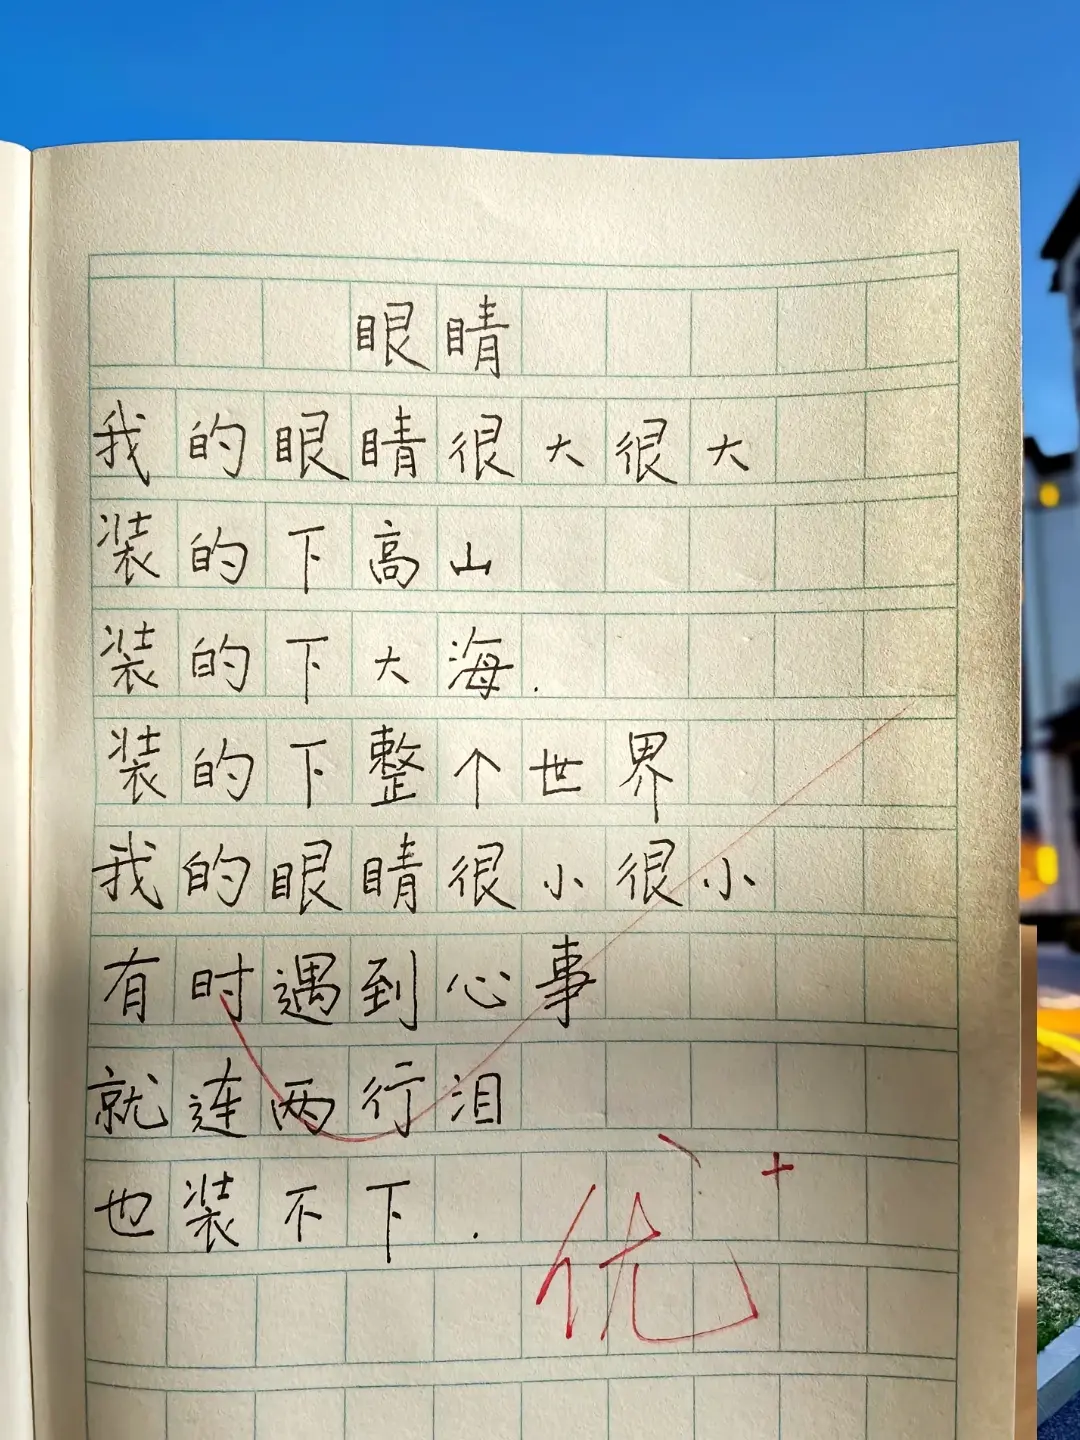 眼睛
我的眼睛很大很大
装的下高山
装的下大海.
装的下整个世界
我的眼睛很小很小
有时遇到心事
就连两行泪
也装不下.
优+